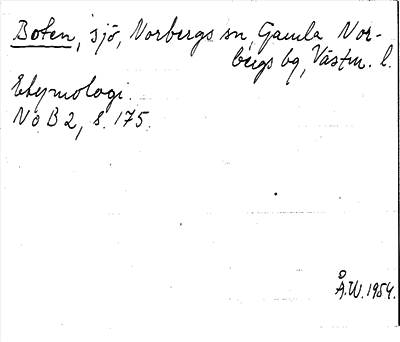 Boten, sjö, Norbergs sn, Gamla Nor-
bergs bg, Västm. l.
Etymologi.
NoB 2, s. 175.
Å.W. 1954.